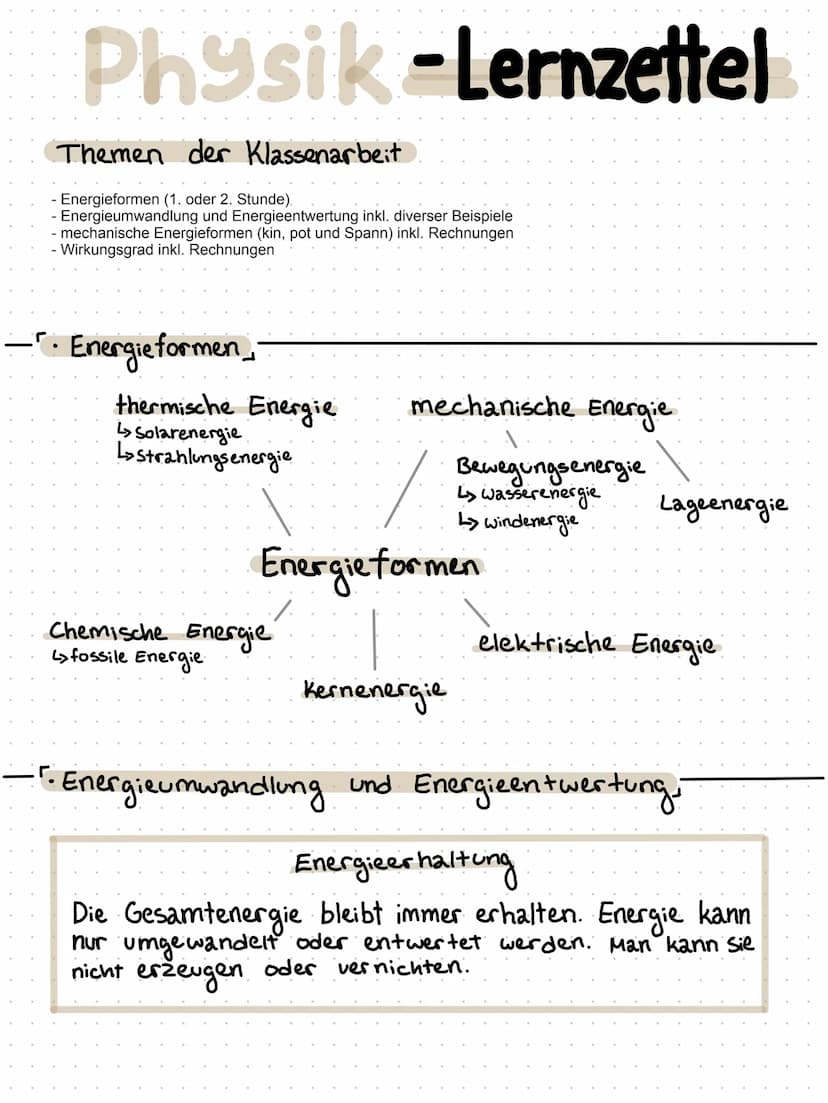 Physik -Lernzettel
Themen der Klassenarbeit
- Energieformen (1. oder 2. Stunde)
- Energieumwandlung und Energieentwertung inkl. diverser Beispiele
- mechanische Energieformen (kin, pot und Spann) inkl. Rechnungen
- Wirkungsgrad inkl. Rechnungen
「· Energieformen」
thermische Energie
↳ Solarenergie
↳ Strahlungsenergie
mechanische Energie
Bewegungsenergie
↳ Wasserenergie
↳ Windenergie
Lageenergie
Energieformen
Chemische Energie
↳ fossile Energie
Kernenergie
elektrische Energie
「· Energieumwandlung und Energieentwertung」
Energieerhaltung
Die Gesamtenergie bleibt immer erhalten. Energie kann
nur umgewandelt oder entwertet werden. Man kann sie
nicht erzeugen oder vernichten.